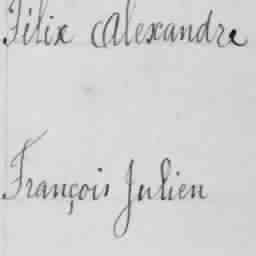 Félix Alexandre
François Julien